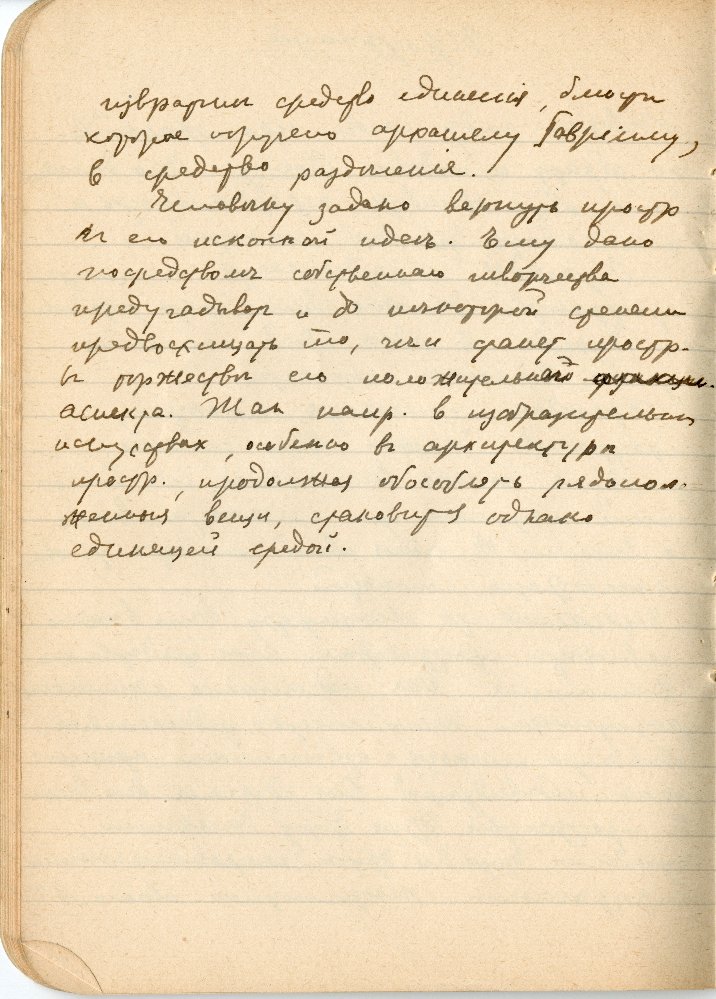 извратил средство единенія, блюсти
которое поручено архангелу Гавріилу,
в средство раздѣленія.
Человѣку задано вернуть простр.
къ его исконной идеѣ. Ему дано
посредствомъ собственнаго творчества
предугадывать и до нѣкоторой степени
предвосхищать то, чѣм станет простр.
в торжествѣ его положительнаго функціи.
аспекта. Так напр. в изобразительных
искусствах, особенно въ архитектурѣ
простр., продолжая обособлять рядопол-
женныя вещи, становится однако
единящей средой.